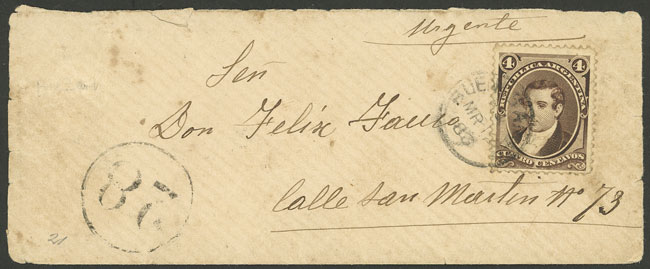 Urgente
4 4
REPUBLICA ARGENTINA
CUATRO CENTAVOS
BUEN
MR
Señ
Don Felix
Calle San Martin Nº 73
28
21